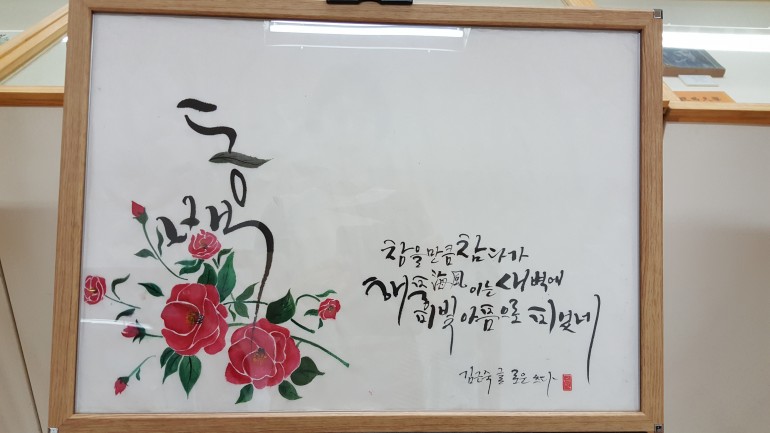 동백
참을 만큼 참다가
해풍海風 이는 새벽에
핏빛 아픔으로 피었네
김근숙 글 쓰다